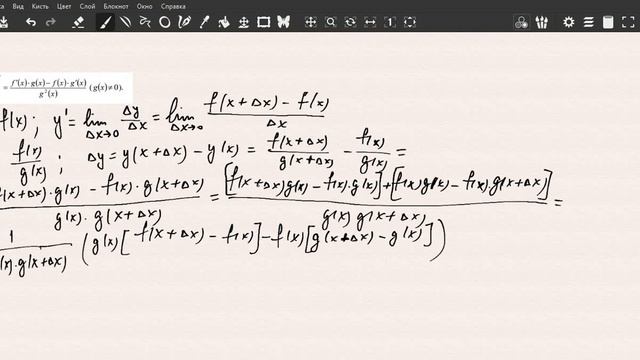 Вид Кисть Цвет Слой Блокнот Окно Справка
= f'(x)·g(x) − f(x)·g'(x) / g²(x) (g(x)≠0).
f(x); y' = lim Δx→0 Δy/Δx = lim Δx→0 (f(x+Δx) − f(x))/Δx
f(x)/g(x); Δy = y(x+Δx) − y(x) = f(x+Δx)/g(x+Δx) − f(x)/g(x) =
f(x+Δx)·g(x) − f(x)·g(x+Δx) / g(x)·g(x+Δx) = [f(x+Δx)g(x) − f(x)·g(x)] + [f(x)g(x) − f(x)·g(x+Δx)] / g(x) g(x+Δx) =
1/g(x)·g(x+Δx) (g(x)[f(x+Δx) − f(x)] − f(x)[g(x+Δx) − g(x)])